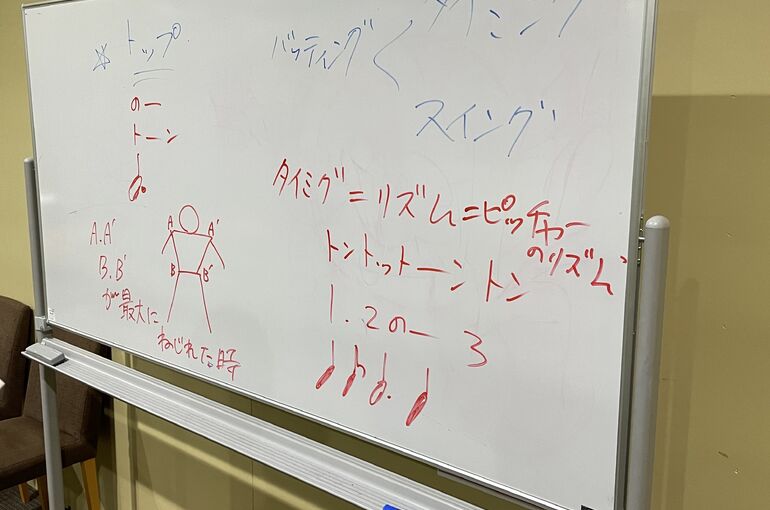 ☆ トップ
のー
トーン
A.A'
B.B'
が最大に
ねじれた時
A A'
B B'
バッティング < タイミング
スイング
タイミグ=リズム=ピッチャー
のリズム
トントットーントン
1.2のー 3